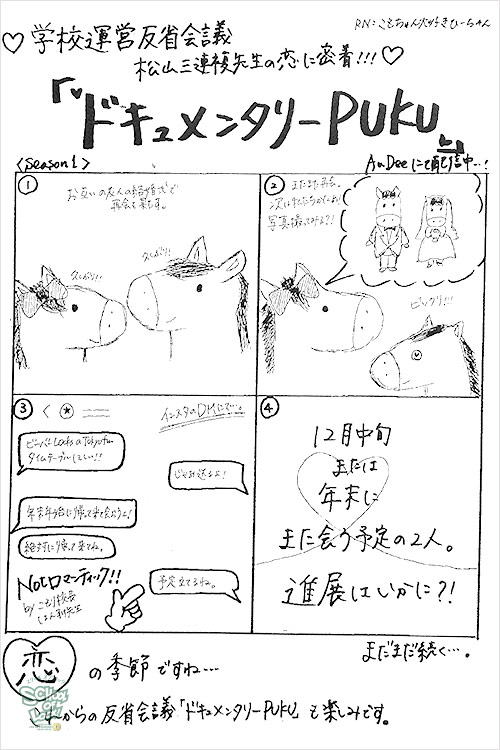 RN：こもちゃん大好きひーちゃん
♡学校運営反省会議
松山三連複先生の恋に密着!!!♡
「ドキュメンタリーPUKU」
<Season1>
AuDeeにて配信中…!
①
お互いの友人の結婚式で
再会を果たす。
久しぶり!!
久しぶり!!
②
またまた再会。
写真撮ってみよう?!
ビックリ!!!
③
インスタのDMにて…。
タイムテーブルほしい!!
じゃあ送るよ!
年末年始に帰って来て会おうよ!
絶対に帰って来てね。
予定立てるね。
Notロマンティック!!
by こもり校長
④
12月中旬
または
年末に
また会う予定の2人。
進展はいかに?!
まだまだ続く…。
恋の季節ですね…
これからの反省会議「ドキュメンタリーPUKU」も楽しみです。